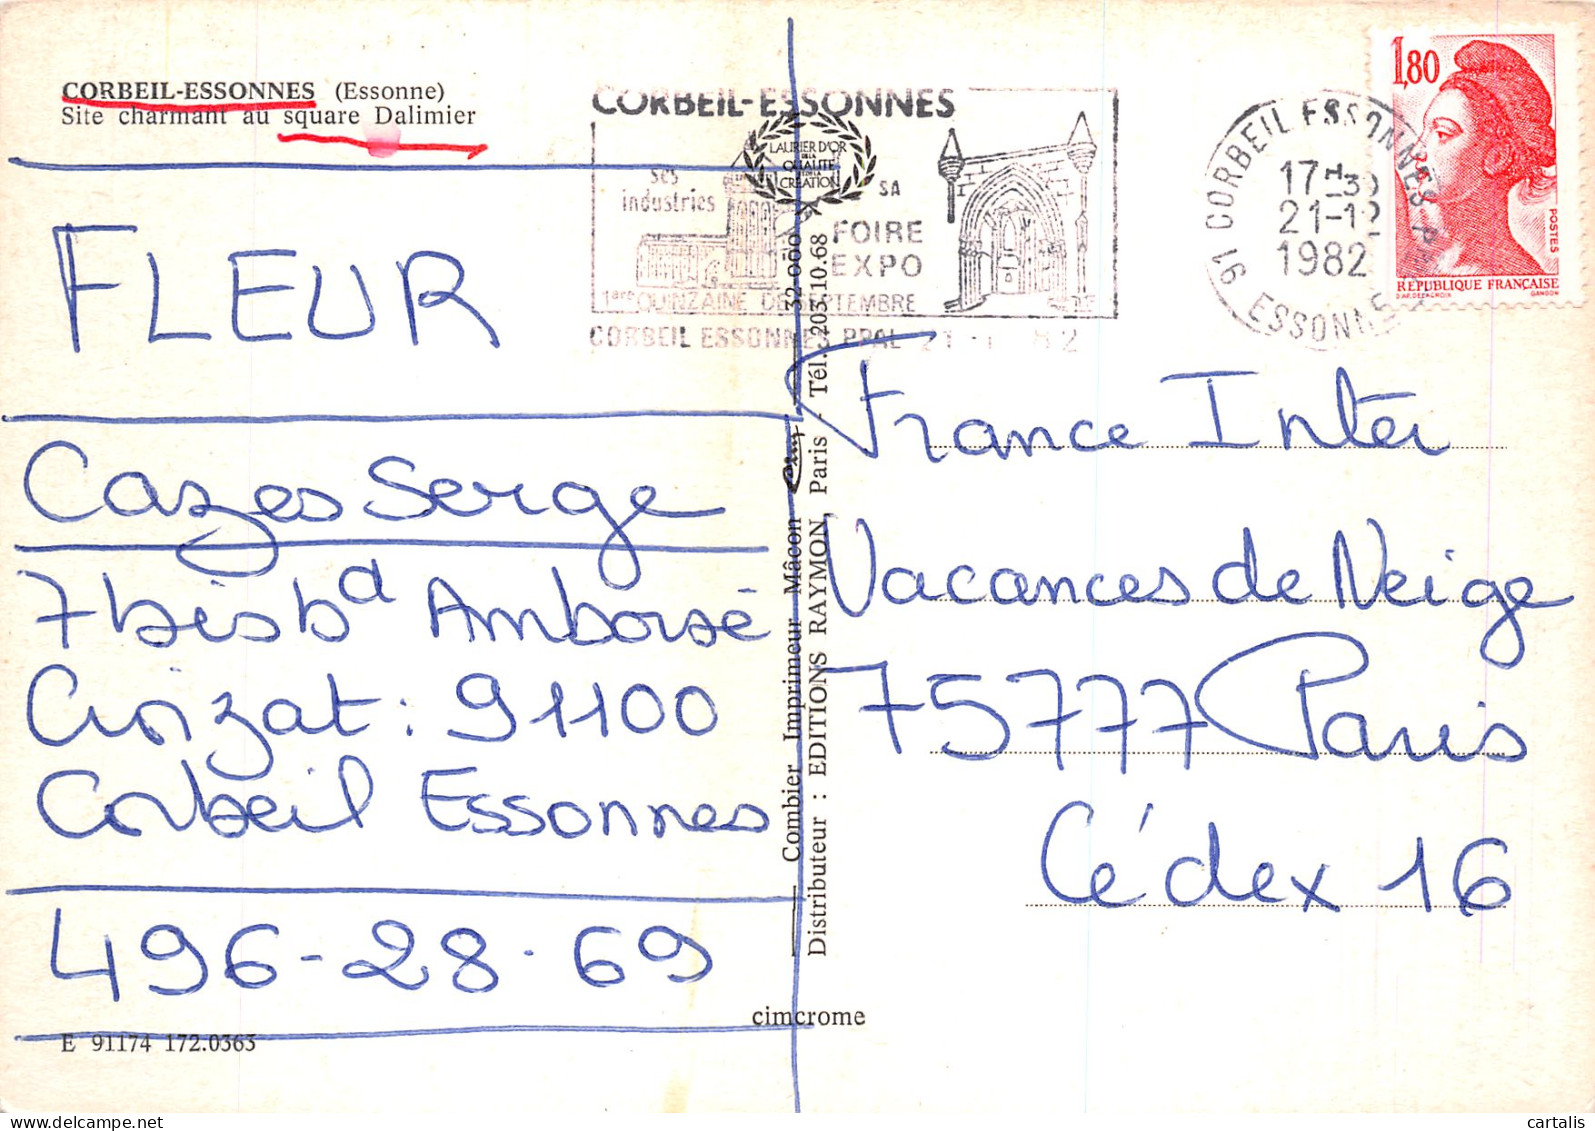 CORBEIL-ESSONNES (Essonne)
Site charmant au square Dalimier
FLEUR
Cazes Serge
7bis bd Amborsé
Croizat : 91100
Corbeil Essonnes
496-28-69
E 91174 172.0363
CORBEIL-ESSONNES
ses
industries
LAURIER D'OR
DE LA
QUALITE
DE LA
CREATION
SA
FOIRE
EXPO
1ere QUINZAINE DE SEPTEMBRE
CORBEIL ESSONNES PPAL 21
Combier Imprimeur Mâcon
32-060
Distributeur : EDITIONS RAYMON, Paris - Tél. 203.10.68
cimcrome
91 CORBEIL ESSONNES
17H30
21-12
1982
ESSONNE
1,80
POSTES
REPUBLIQUE FRANÇAISE
D'AP. DELACROIX GANDON
France Inter
Vacances de Neige
75777 Paris
Cédex 16
cartalis